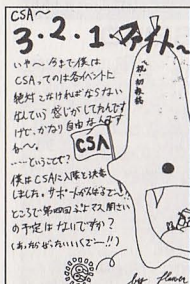 CSA〜
3.2.1.ファイト〜
いや〜 今まで僕は
CSAってのは各イベントに
絶対こなければならない
なんていう感じがしてたんです
けど、かなり自由なんです
ね〜。
……ということで?
僕はCSAに入隊を決意
しました。サポートがんばるぞー!!
ところで第四回ぷよマス関西
の予定はないですか?
(あったらぜったいいくぞー!!)
CSA
by flower